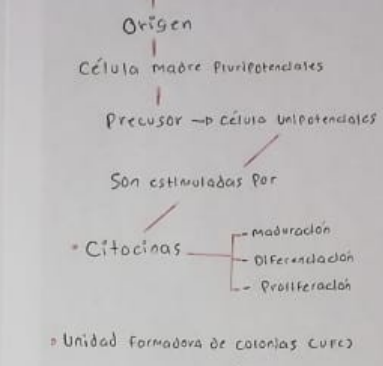 Origen
Célula madre Pluripotenciales
Precusor → Célula Unipotenciales
Son estimuladas Por
• Citocinas
- maduración
- Diferenciación
- Proliferación
• Unidad Formadora de colonias (UFC)